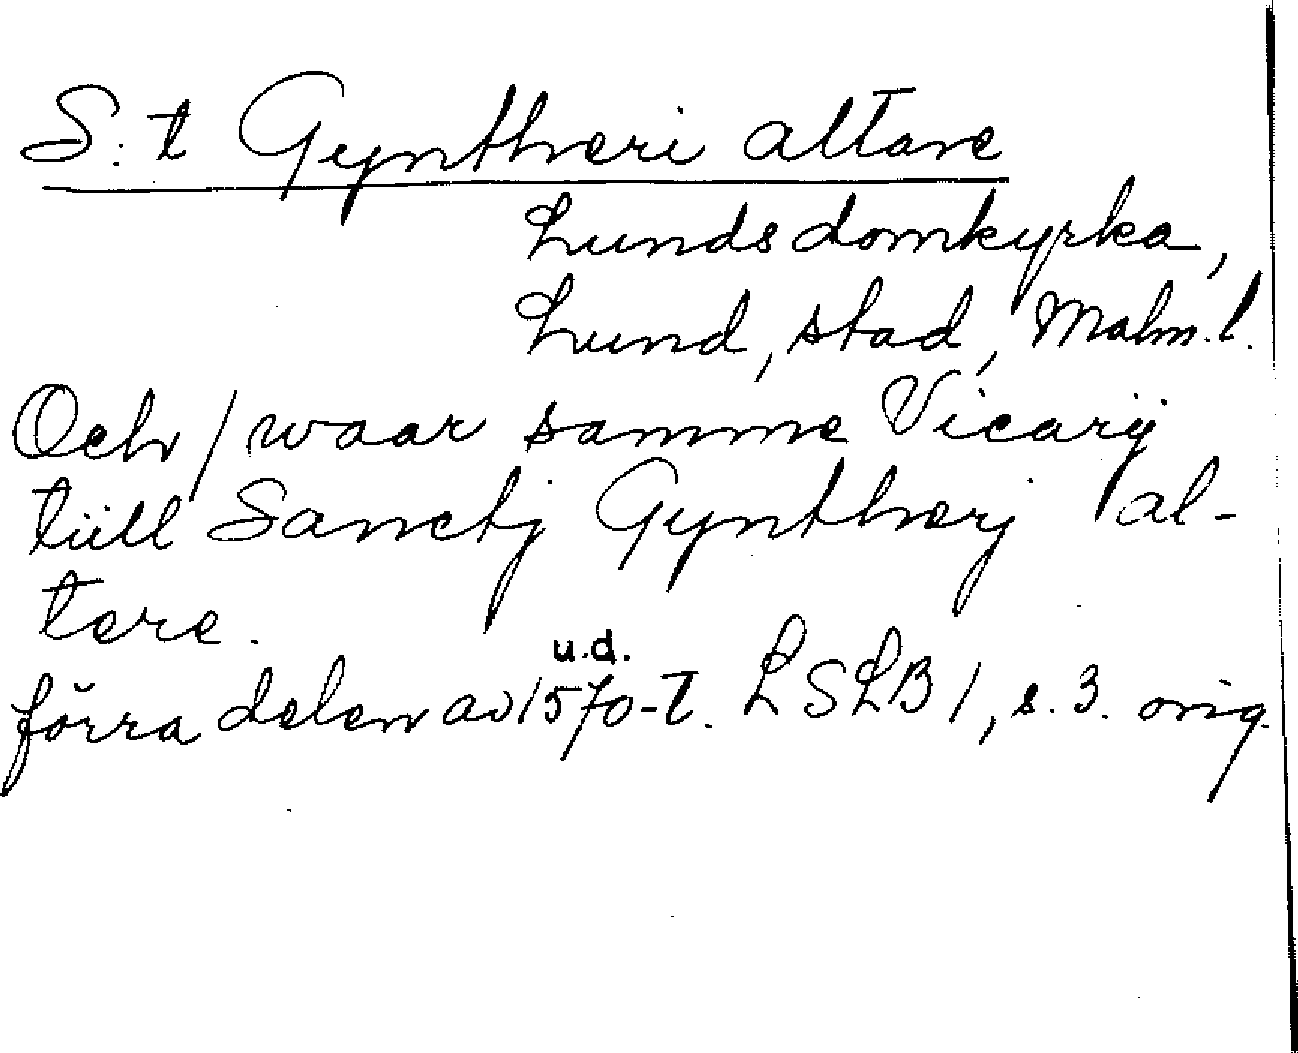 S:t Gyntheri altare
Lunds domkyrka,
Lund, stad, Malm. l.
Och / waar samme Vicarij
tüll Sanctj Gyntherj al-
tere.
u.d.
förra delen av 1570-t. LSLB 1, s. 3. orig.